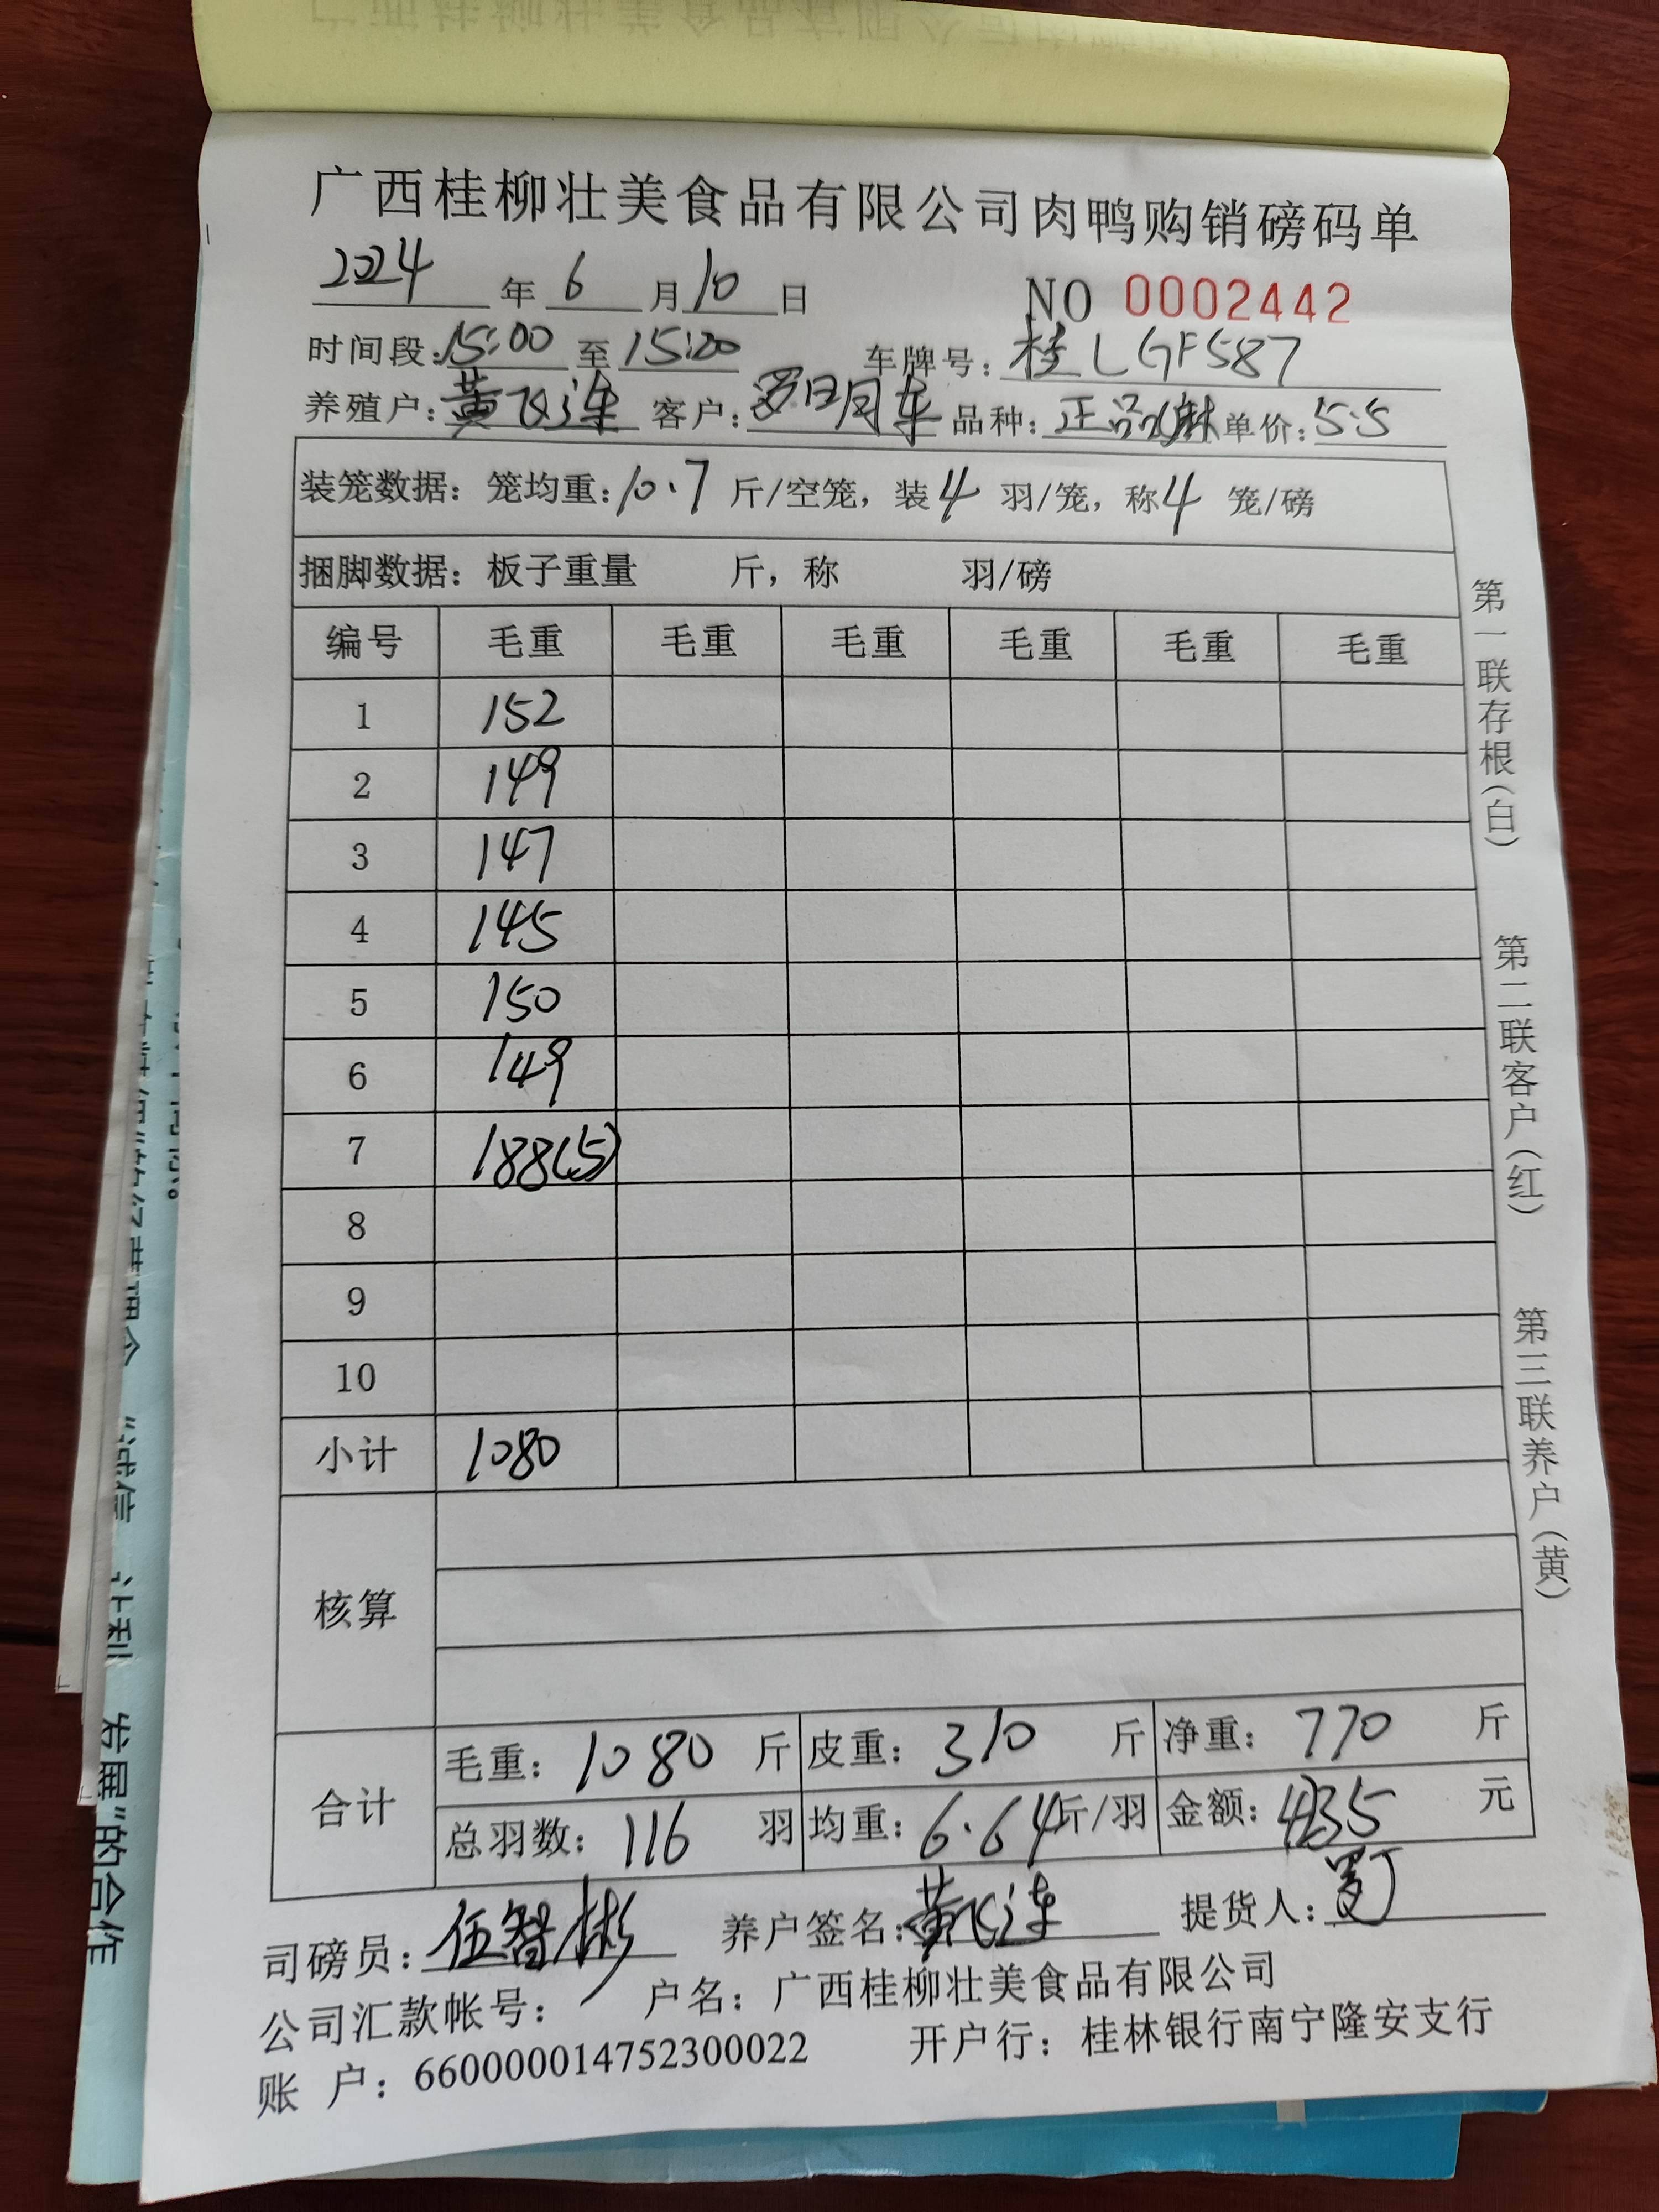 广西桂柳壮美食品有限公司肉鸭购销磅码单
2024 年 6 月 10 日 NO 0002442
时间段: 15:00 至 15:20 车牌号: 桂LGF587
养殖户: 黄飞连 客户: 罗日月车 品种: 正品 单价: 5.5
装笼数据: 笼均重: 10.7 斤/空笼, 装 4 羽/笼, 称 4 笼/磅
捆脚数据: 板子重量 斤, 称 羽/磅
编号 毛重 毛重 毛重 毛重 毛重 毛重
1 152
2 149
3 147
4 145
5 150
6 149
7 188(5)
8
9
10
小计 1080
核算
合计 毛重: 1080 斤 皮重: 310 斤 净重: 770 斤
总羽数: 116 羽 均重: 6.64 斤/羽 金额: 4235 元
司磅员: 伍智彬 养户签名: 黄飞连 提货人:
公司汇款帐号: 户名: 广西桂柳壮美食品有限公司
账 户: 660000014752300022 开户行: 桂林银行南宁隆安支行
第一联存根(白) 第二联客户(红) 第三联养户(黄)
发展"的合作